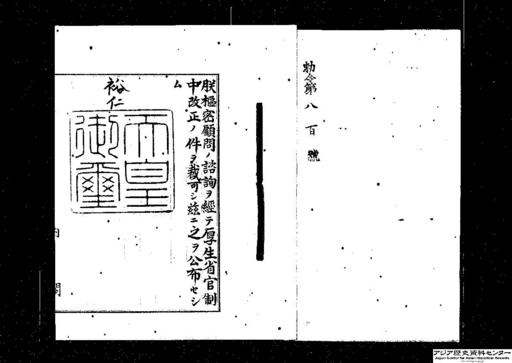 勅令第八百號
朕樞密顧問ノ諮詢ヲ經テ厚生省官制
中改正ノ件ヲ裁可シ茲ニ之ヲ公布セシ
ム
裕仁
天皇
御璽
内閣
アジア歴史資料センター
Japan Center for Asian Historical Records